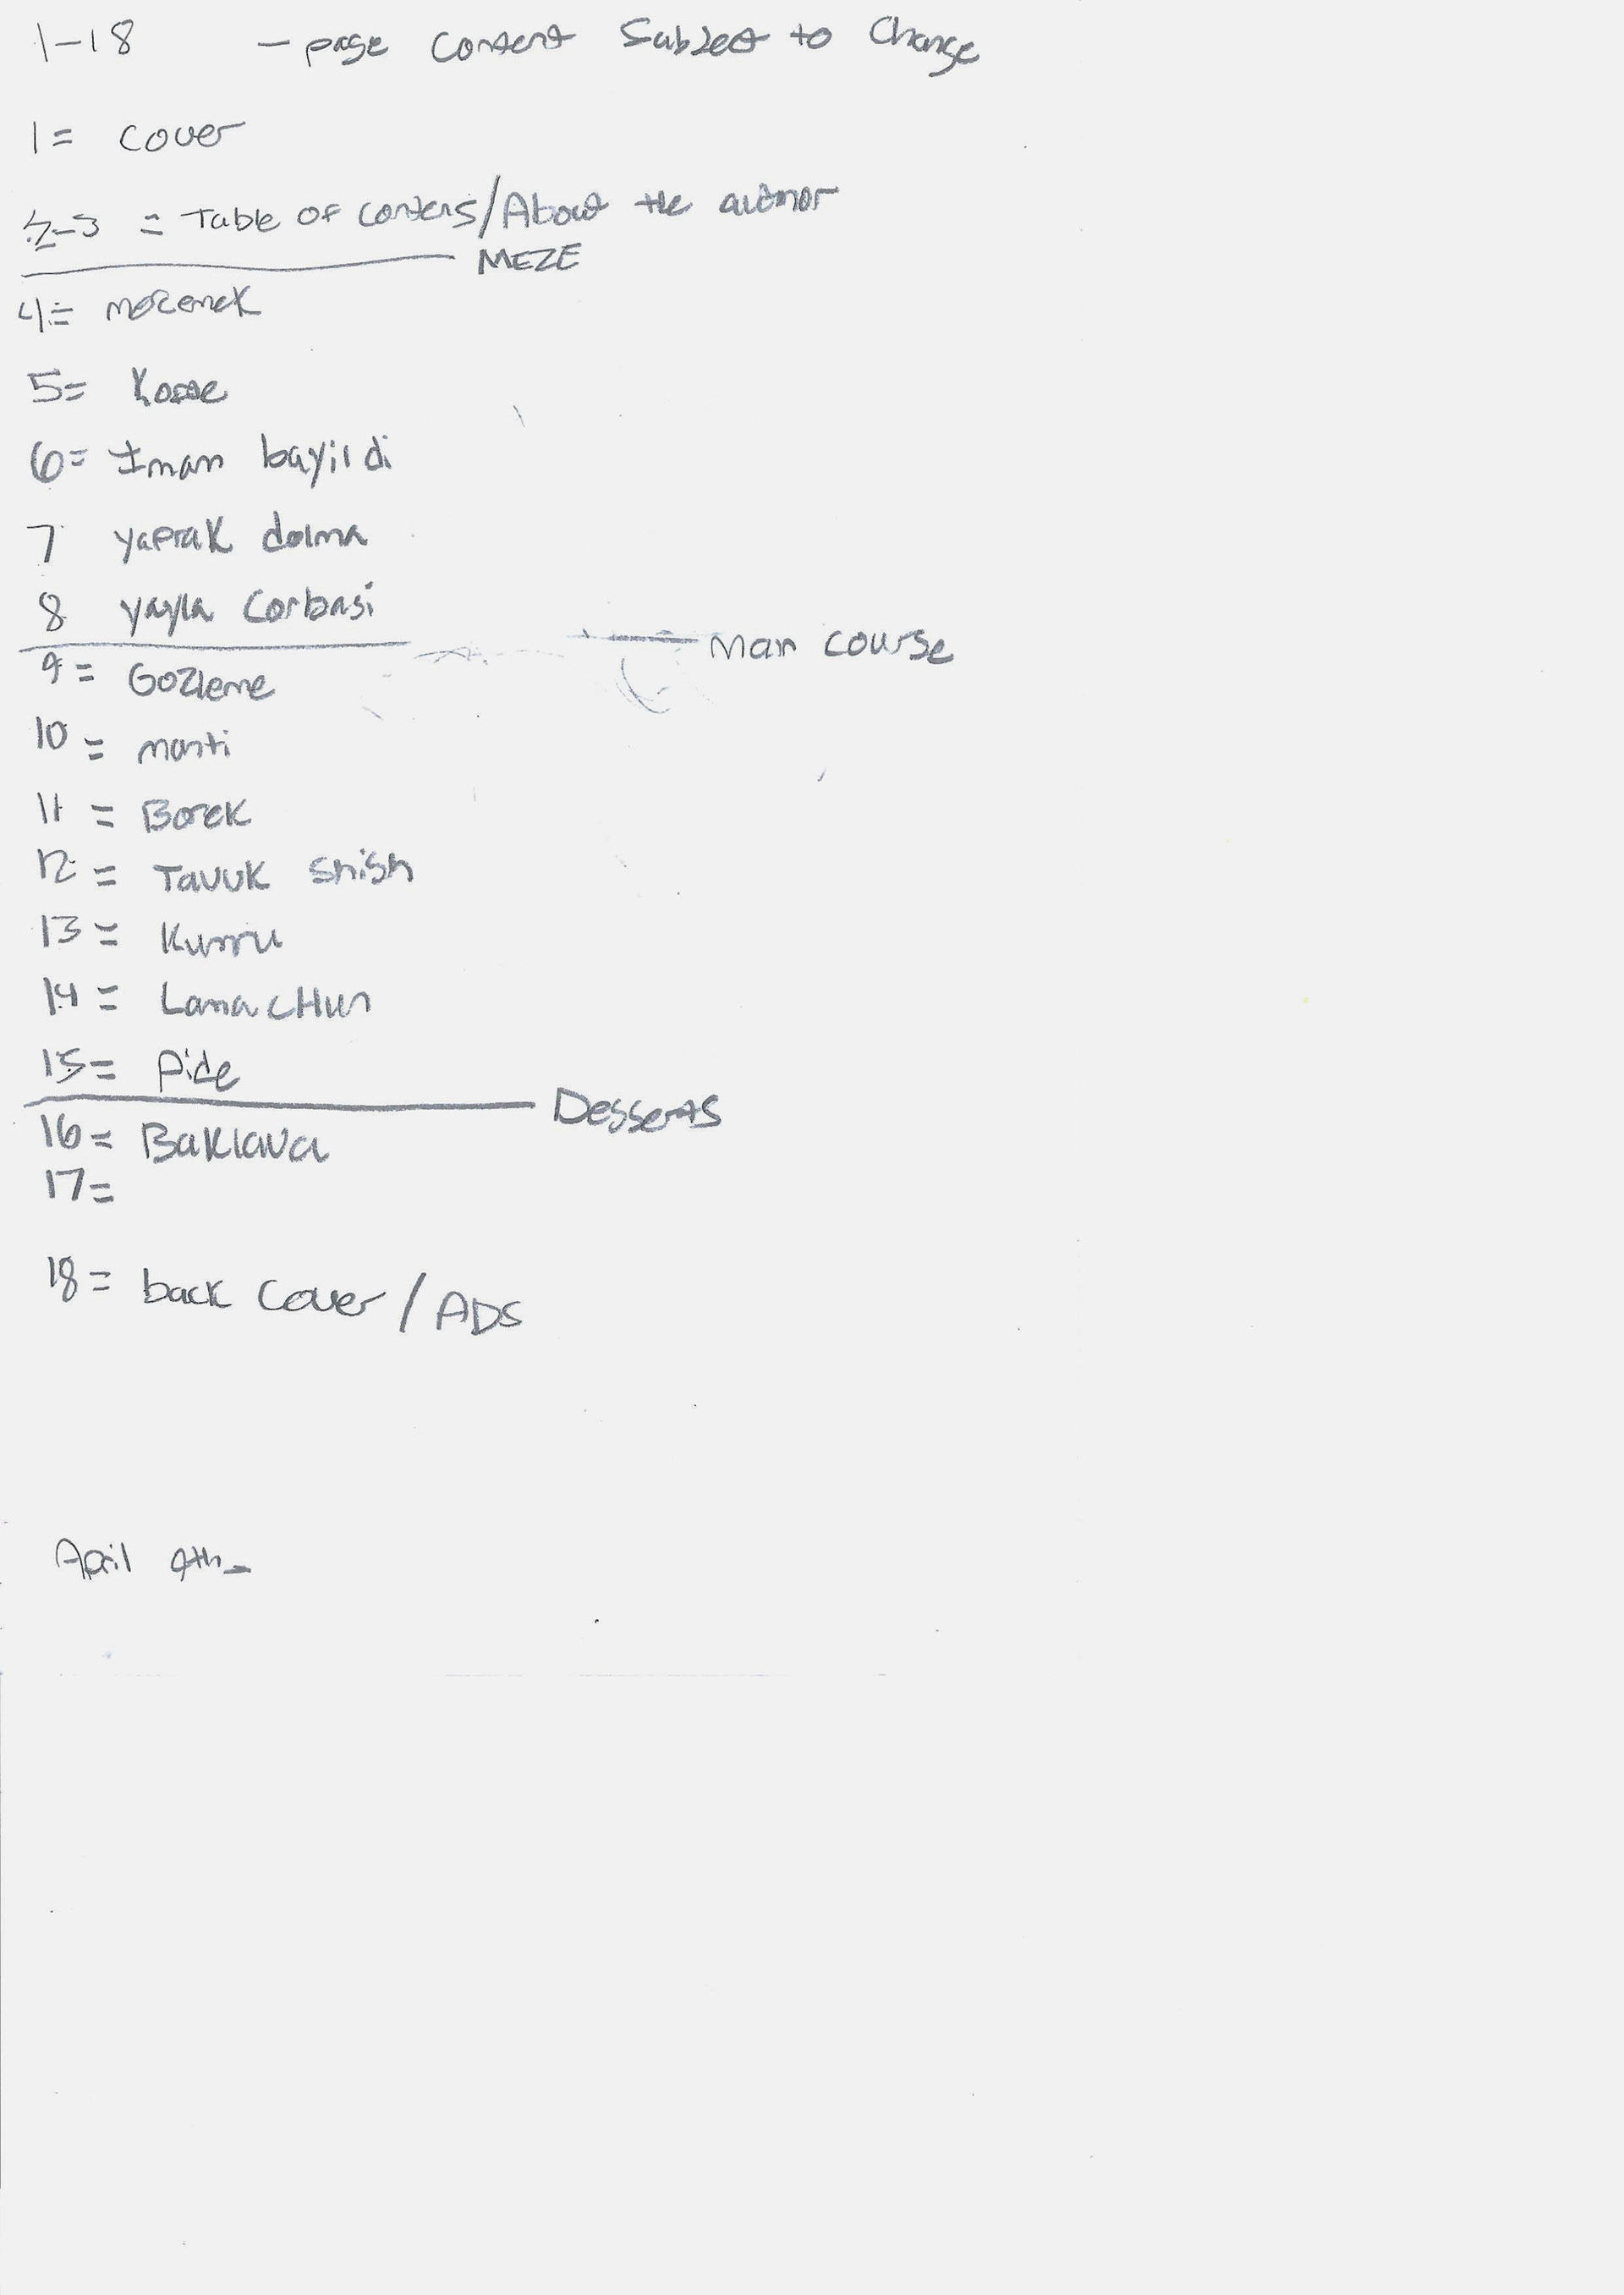 1-18 - page content Subject to Change
1 = cover
2-3 = Table of contens/About the author
MEZE
4 =
5 =
6 = Iman bayildi
7 yaprak dolma
8 yayla Corbasi
Man course
9 = Gozleme
10 = manti
11 = Borek
12 = Tavuk shish
13 =
14 = LamacHun
15 = Pide
Desserts
16 = Baklava
17 =
18 = back cover / ADS
April 9th -